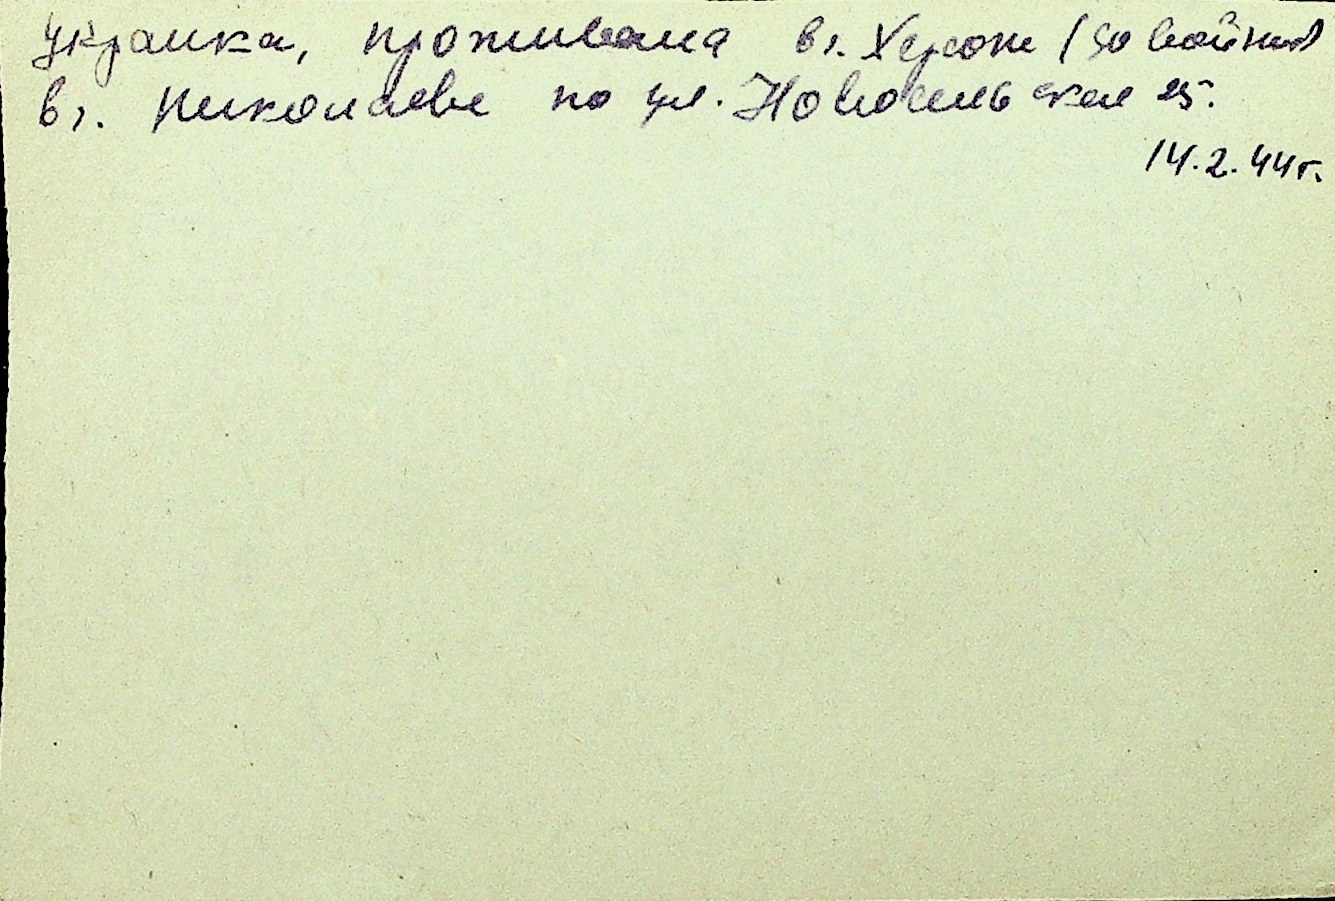 украинка, проживала в г. Херсоне (до войны)
в г. Николаеве по ул. Новосельская 25.
14.2.44г.